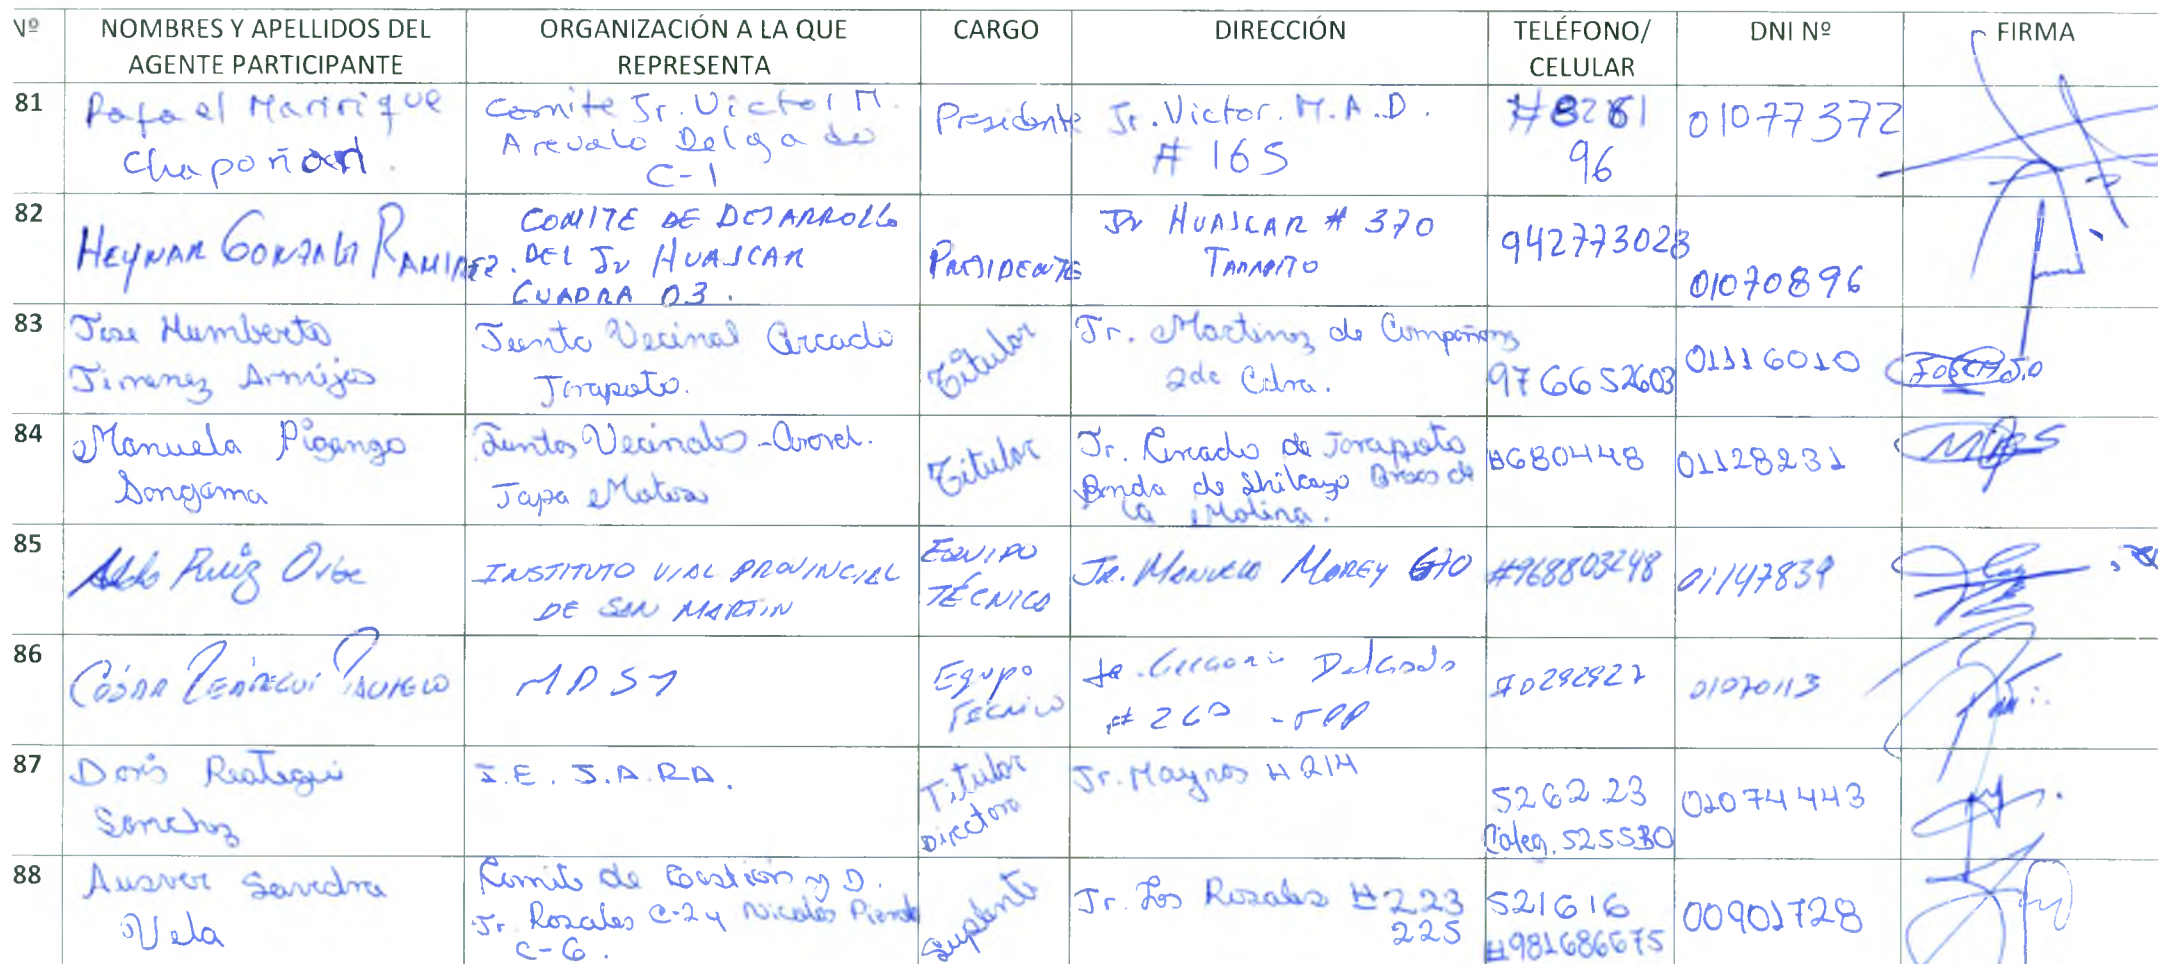 Nº NOMBRES Y APELLIDOS DEL AGENTE PARTICIPANTE ORGANIZACIÓN A LA QUE REPRESENTA CARGO DIRECCIÓN TELÉFONO/ CELULAR DNI Nº FIRMA
81 Rafael Manrique Chapoñan. Comite Jr. Victor M. Arevalo Delgado C-1 Presidente Jr. Victor. M.A.D. # 165 #828196 01077372
82 HEYNAR GONZALES RAMIREZ. COMITE DE DESARROLLO DEL Jr HUASCAR CUADRA 03. PRESIDENTE Jr HUASCAR # 370 TARAPOTO 942773023 01070896
83 Jose Humberto Jimenez Armijos Junta Vecinal Cercado Tarapoto. Titular Jr. Martinez de Compañon 2da Cdra. 976652603 01116010
84 Manuela Pigango Sangama Juntas Vecinales - Coronel. Titular Jr. Cercado de Tarapoto Banda de Shilcayo de la Molina. #680448 01128231
85 Aldo Ruiz Orbe INSTITUTO VIAL PROVINCIAL DE SAN MARTIN EQUIPO TÉCNICO Jr. MANUELA MOREY 670 #968803248 01147839
86 MDSM Equipo TECNICO Jr. Gregorio Delgado # 260 - TPP 01070113
87 Doris Reategui Sanchez I.E. J.A.R.A. Titular Directora Jr. Maynas # 214 526223 Coleg. 525530 01074443
88 Ausver Saavedra Vela Comite de Gestión y D. Jr. Rosales C-2 y Nicolas Pierola C-6. Suplente Jr. Los Rosales # 223 225 521616 #981686675 00901728